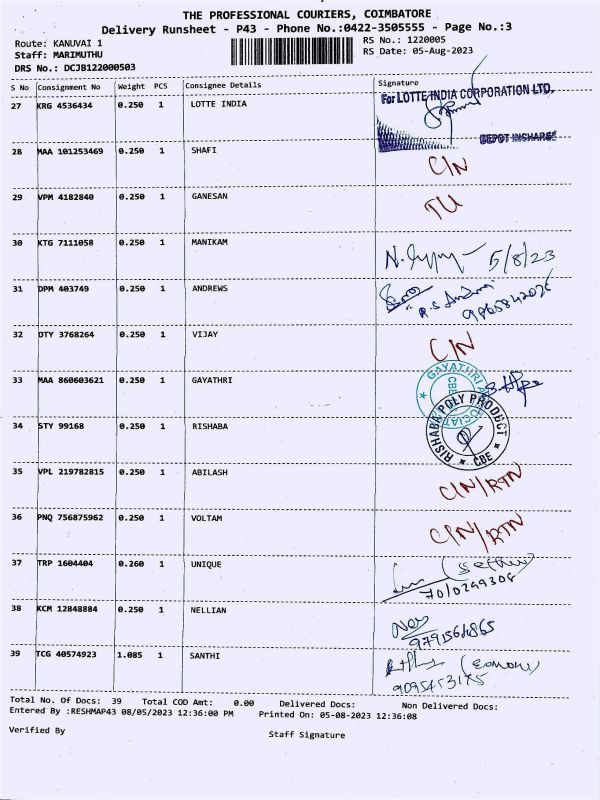 THE PROFESSIONAL COURIERS, COIMBATORE
Delivery Runsheet - P43 - Phone No.:0422-3505555 - Page No.:3
Route: KANUVAI 1 RS No.: 1220005
Staff: MARIMUTHU RS Date: 05-Aug-2023
DRS No.: DCJB122000503
S No Consignment No Weight PCS Consignee Details Signature
27 KRG 4536434 0.250 1 LOTTE INDIA For LOTTE INDIA CORPORATION LTD.
DEPOT INCHARGE
28 MAA 101253469 0.250 1 SHAFI C/N
29 VPM 4182840 0.250 1 GANESAN TU
30 KTG 7111058 0.250 1 MANIKAM 5/8/23
31 DPM 403749 0.250 1 ANDREWS
32 DTY 3768264 0.250 1 VIJAY C/N
33 MAA 860603621 0.250 1 GAYATHRI GAYATHRI CBE
34 STY 99168 0.250 1 RISHABA RISHABA POLY PRODUCT CBE
35 VPL 219782815 0.250 1 ABILASH C/N/RTN
36 PNQ 756875962 0.250 1 VOLTAM C/N/RTN
37 TRP 1604404 0.260 1 UNIQUE
7010299308
38 KCM 12848884 0.250 1 NELLIAN
39 TCG 40574923 1.085 1 SANTHI
Total No. Of Docs: 39 Total COD Amt: 0.00 Delivered Docs: Non Delivered Docs:
Entered By :RESHMAP43 08/05/2023 12:36:00 PM Printed On: 05-08-2023 12:36:08
Verified By Staff Signature